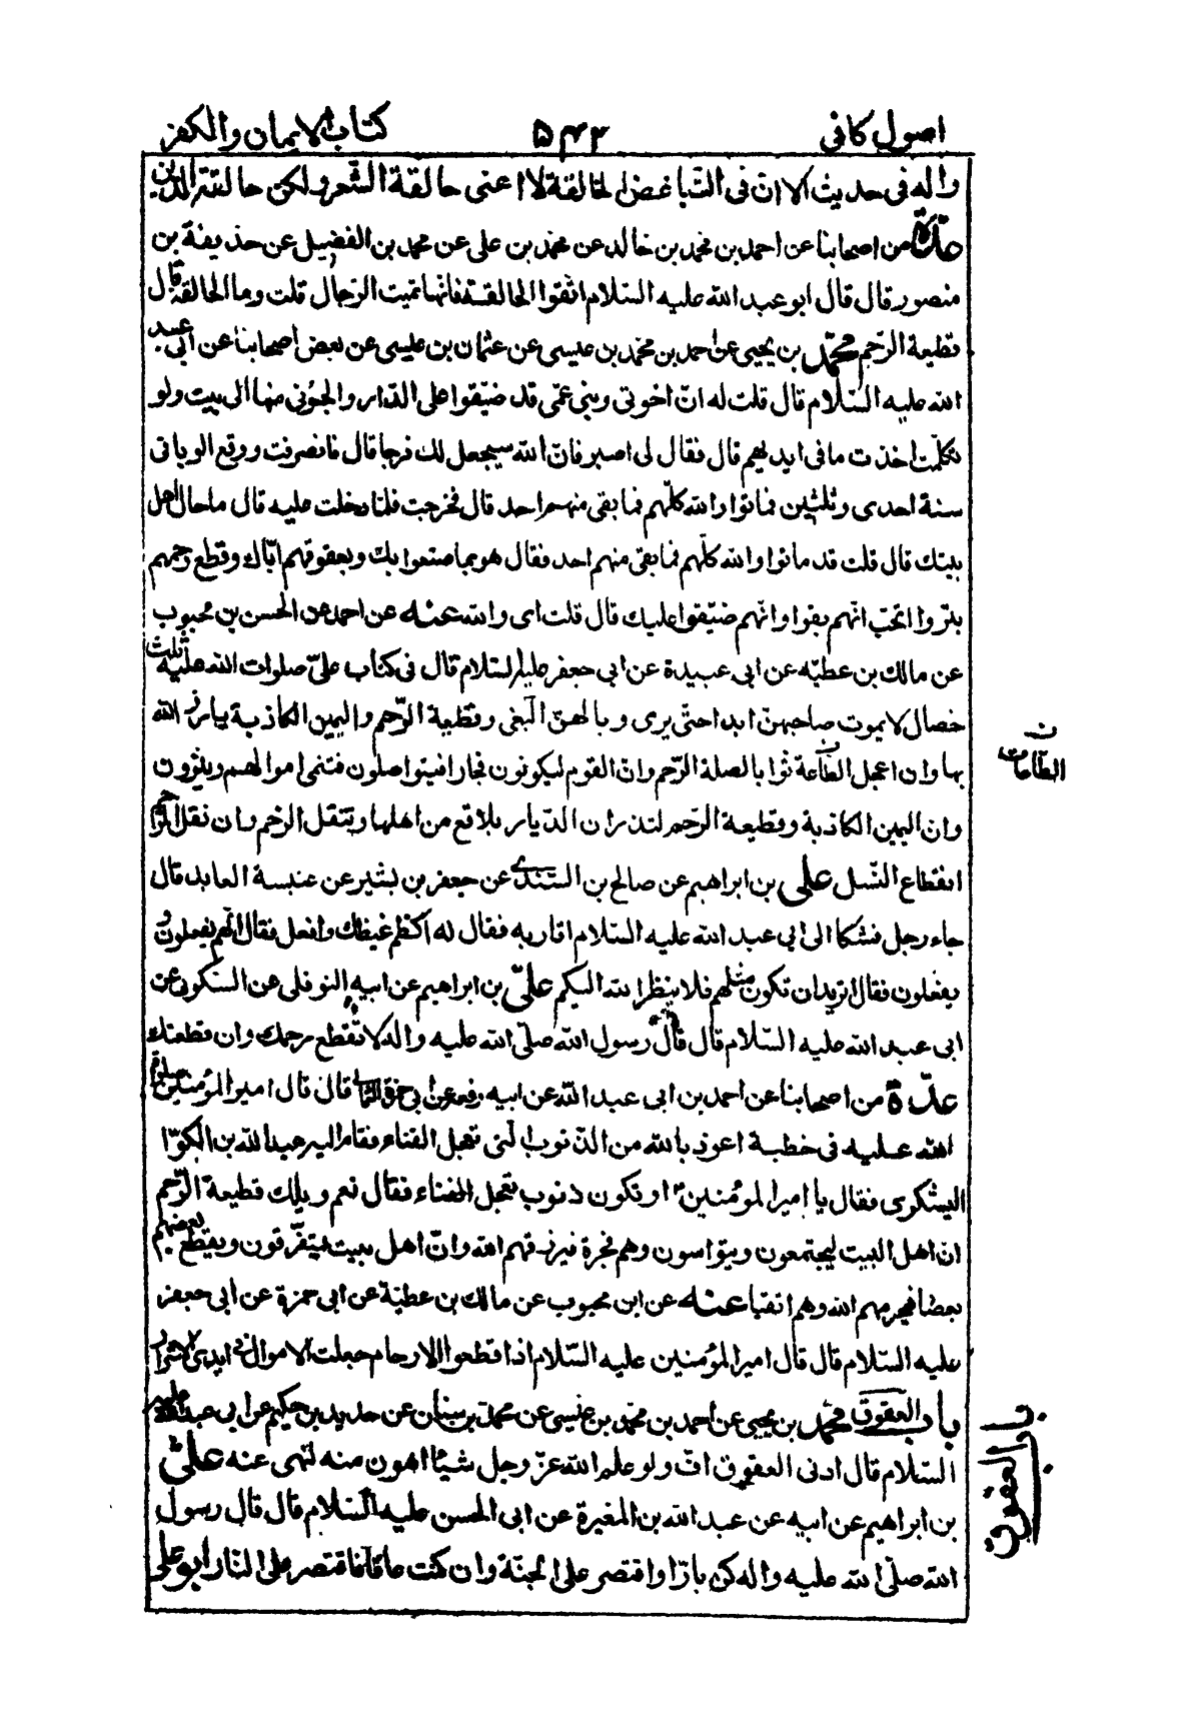 اصول كافى ۵۴۳ كتاب الايمان والكفر
واله فى حديث الا ان فى التباغض الحالقة لا اعنى حالقة الشعر ولكن حالقة الدين
عدة من اصحابنا عن احمد بن محمد بن خالد عن محمد بن على عن محمد بن الفضيل عن حذيفة بن
منصور قال قال ابو عبد الله عليه السلام اتقوا الحالقة فانها تميت الرجال قلت وما الحالقة قال
قطيعة الرحم محمد بن يحيى عن احمد بن محمد بن عيسى عن عثمان بن عيسى عن بعض اصحابنا عن ابى عبد
الله عليه السلام قال قلت له ان اخوتى وبنى عمى قد ضيقوا على الدار والجئونى منها الى بيت ولو
تكلمت اخذت ما فى ايديهم قال فقال لى اصبر فان الله سيجعل لك فرجا قال فانصرفت ووقع الوباء فى
سنة احدى وثلثين فماتوا والله كلهم فما بقى منهم احد قال فخرجت فلما دخلت عليه قال ما حال اهل
بيتك قال قلت قد ماتوا والله كلهم فما بقى منهم احد فقال هو بما صنعوا بك وبعقوقهم اياك وقطع رحمهم
بتروا اتحب انهم بقوا وانهم ضيقوا عليك قال قلت اى والله عنه عن احمد عن الحسن بن محبوب
عن مالك بن عطية عن ابى عبيدة عن ابى جعفر عليه السلام قال فى كتاب على صلوات الله عليه ثلث
خصال لا يموت صاحبهن ابدا حتى يرى وبالهن البغى وقطيعة الرحم واليمين الكاذبة يبارز الله
بها وان اعجل الطاعة ثوابا لصلة الرحم وان القوم ليكونون فجارا فيتواصلون فتنمى اموالهم ويثرون
ن
الطاعات
وان اليمين الكاذبة وقطيعة الرحم لتذران الديار بلاقع من اهلها وتنقل الرحم وان نقل الرحم
انقطاع النسل على بن ابراهيم عن صالح بن السندى عن جعفر بن بشير عن عنبسة العابد قال
جاء رجل فشكا الى ابى عبد الله عليه السلام اقاربه فقال له اكظم غيظك وافعل فقال انهم يفعلون و
يفعلون فقال اتريد ان تكون مثلهم فلا ينظر الله اليكم على بن ابراهيم عن ابيه عن النوفلى عن السكونى عن
ابى عبد الله عليه السلام قال قال رسول الله صلى الله عليه واله لا تقطع رحمك وان قطعتك
عدة من اصحابنا عن احمد بن ابى عبد الله عن ابيه رفعه عن ابى حمزة الثمالى قال قال امير المؤمنين صلوات
الله عليه فى خطبة اعوذ بالله من الذنوب التى تعجل الفناء فقام اليه عبد الله بن الكوا
اليشكرى فقال يا امير المؤمنين او تكون ذنوب تعجل الفناء فقال نعم ويلك قطيعة الرحم
ان اهل البيت ليجتمعون ويتواسون وهم فجرة فيرزقهم الله وان اهل بيت ليتفرقون ويقطع بعضهم
بعضا فيحرمهم الله وهم اتقياء عنه عن ابن محبوب عن مالك بن عطية عن ابى حمزة عن ابى جعفر
عليه السلام قال قال امير المؤمنين عليه السلام اذا قطعوا الارحام جعلت الاموال فى ايدى الاشرار
باب العقوق محمد بن يحيى عن احمد بن محمد بن عيسى عن محمد بن سنان عن حديد بن حكيم عن ابى عبد الله عليه
باب العقوق
السلام قال ادنى العقوق اف ولو علم الله عز وجل شيئا اهون منه لنهى عنه على
بن ابراهيم عن ابيه عن عبد الله بن المغيرة عن ابى الحسن عليه السلام قال قال رسول
الله صلى الله عليه واله كن بارا واقتصر على الجنة وان كنت عاقا فاقتصر على النار ابو على